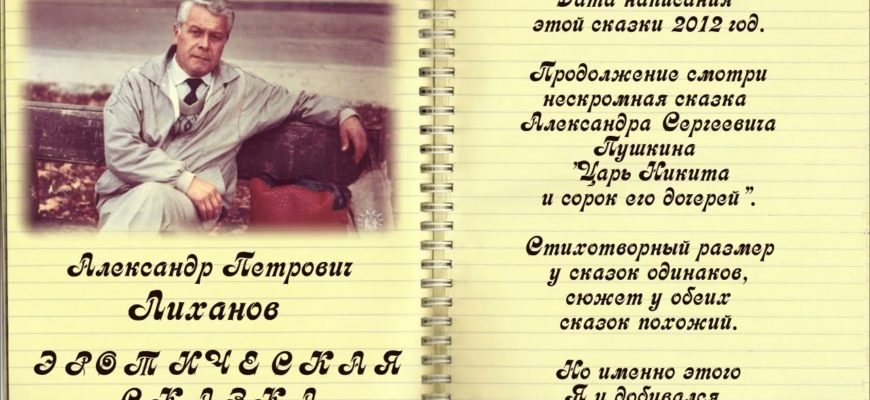 Александр Петрович
Лиханов
ЭРОТИЧЕСКАЯ
СКАЗКА
Дата написания
этой сказки 2012 год.
Продолжение смотри
нескромная сказка
Александра Сергеевича
Пушкина
"Царь Никита
и сорок его дочерей".
Стихотворный размер
у сказок одинаков,
сюжет у обеих
сказок похожий.
Но именно этого
Я и добивался